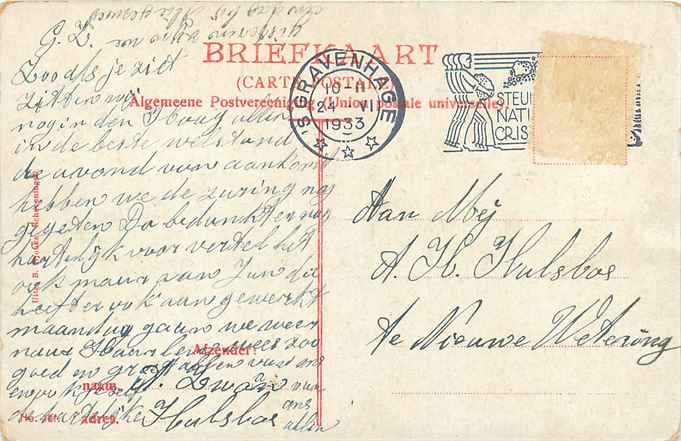 BRIEFKAART
(CARTE POSTALE)
Algemeene Postvereeniging (Union postale universelle).
'SGRAVENHAGE
10-11
24 VI
1933
STEU
NATI
CRIS
G. Z.
Zooals je ziet
zitten wij
nog in den Haag allen
in de beste welstand
de avond van aankomst
hebben we de zuring nog
gegeten Da bedankten nog
hartelijk voor vertel het
ook maar aan Jan die
heeft er ook aan gewerkt
maandag gaan we weer
naar Haarlem wees zoo
goed en groet allen van ons
en ook jezelf
de hartelijke
Hulsbos
van
ons
allen
Afzender:
naam,
adres.
Aan Mej
A. H. Hulsbos
te Nieuwe Wetering